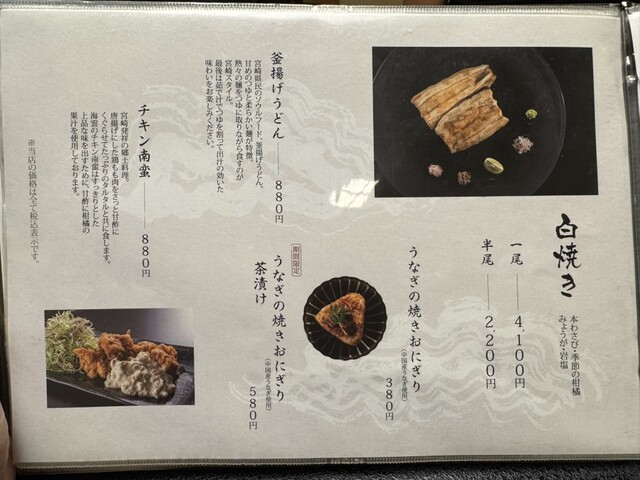 白焼き
本わさび・季節の柑橘
みょうが・岩塩
一尾 4,100円
半尾 2,200円
うなぎの焼きおにぎり
(中国産うなぎ使用)
380円
期間限定
うなぎの焼きおにぎり
茶漬け
(中国産うなぎ使用)
580円
釜揚げうどん 880円
宮崎県民のソウルフード、釜揚げうどん。
甘めのつゆと柔らかい麺が特徴。
熱々の麺をつゆに取りながら食すのが
宮崎スタイル。
最後は茹で汁でつゆを割って出汁の効いた
味わいをお楽しみください。
チキン南蛮 880円
宮崎発祥の郷土料理。
唐揚げにした鶏もも肉をさっと甘酢に
くぐらせてたっぷりのタルタルと共に食します。
海雲のチキン南蛮はすっきりとした
上品な味を出すために、甘酢に柑橘の
果汁を使用しております。
※当店の価格は全て税込表示です。